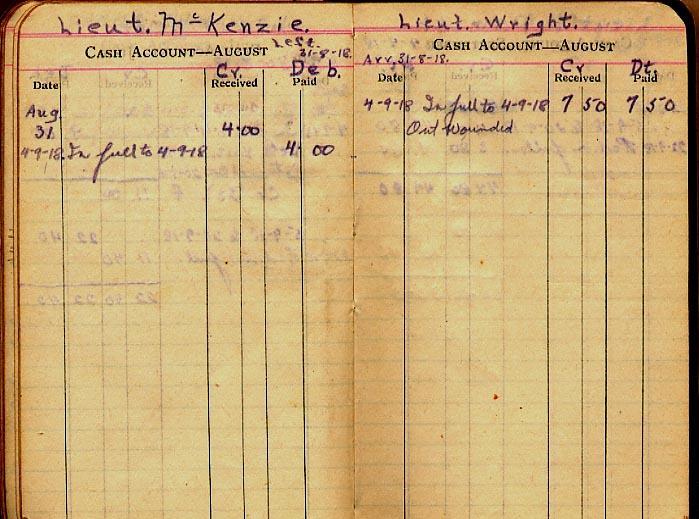 Lieut. McKenzie.
CASH ACCOUNT—AUGUST Left 31-8-18.
Cr. Deb.
Date Received Paid
Aug.
31. 4.00
4-9-18. In full to 4-9-18 4. 00
Lieut. Wright.
CASH ACCOUNT—AUGUST
Arr. 31-8-18.
Cr Dt.
Date Received Paid
4-9-18 In full to 4-9-18 7 50 7 50
Out Wounded